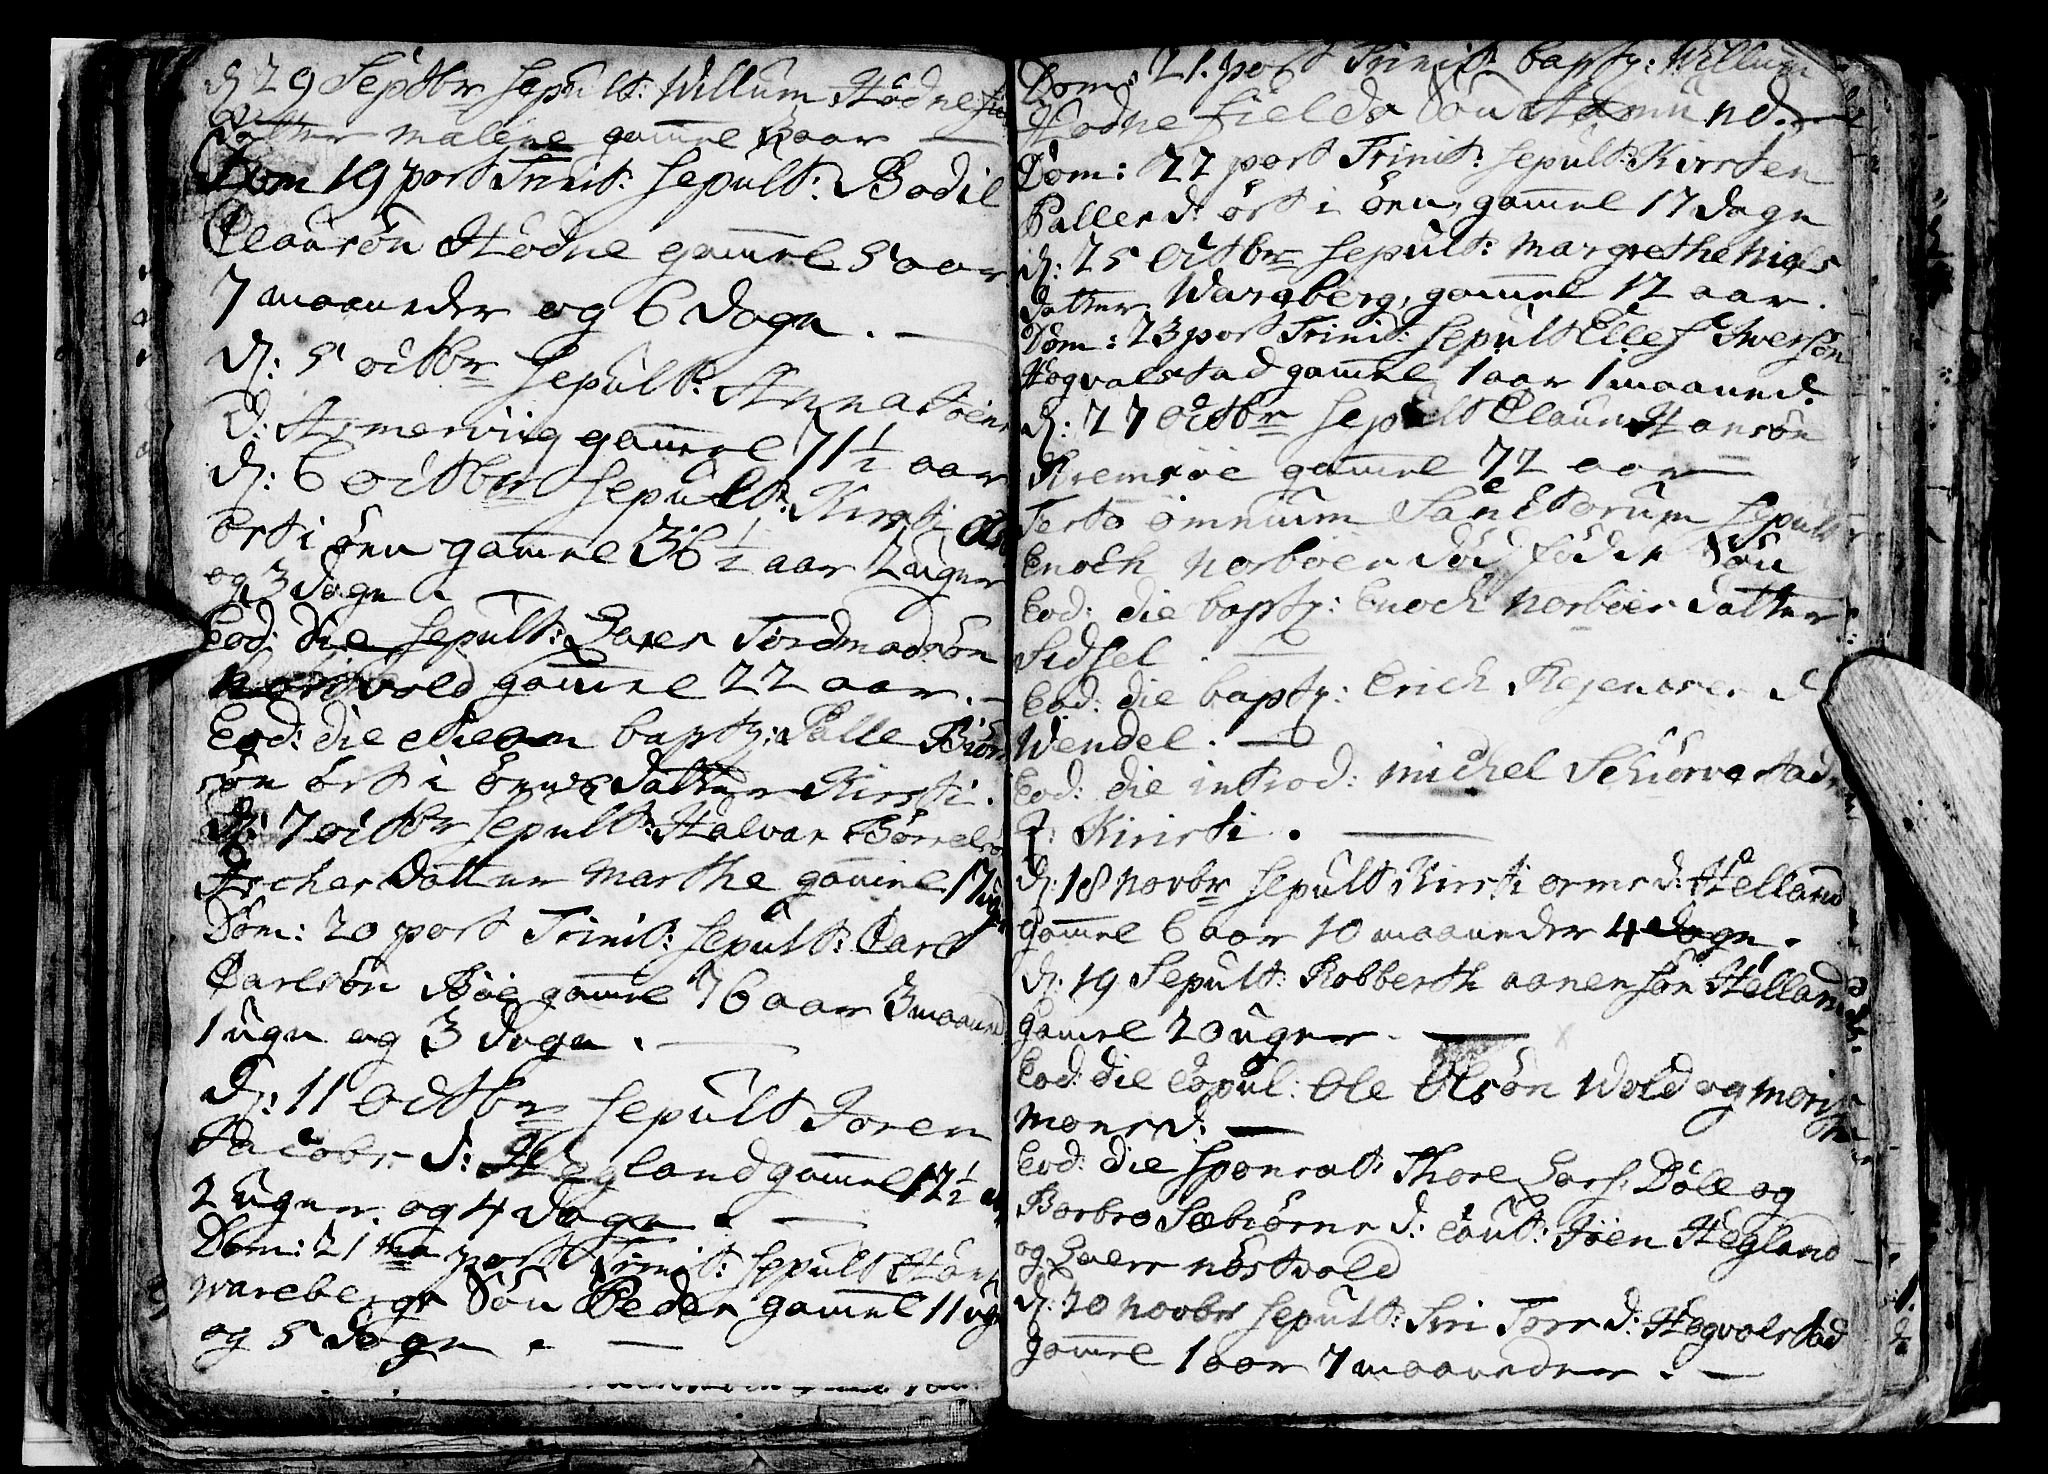 d: 29 Septbr sepult: Willum Hodne
datter malene gamel aar
Dom 19 post Trinit: sepult: Bodil
Clausön Hodne gamel 5 aar
7 maaneder og 6 dage. —
d: 5 octbr sepult: Anna
D: gamel 71 1/2 aar
d: 6 octbr sepult: Kirsti
ört i öen gamel 36 1/2 aar 2 uger
og 3 dage.
Eod: die sepult: Lars Tordmodsön
gamel 22 aar. —
Eod: die bapt: Palle Biörn
sön ört i öens datter Kirsti.
d: 7 octbr sepult: Halvar Börrels
datter marthe gamel 17 uge
Dom: 20 post Trinit: sepult: Carl
Carlsön Böe gamel 76 aar 3 maaned
1 uge og 3 dage. —
d: 11 octbr sepult Joren
Jacobs d: Hegland gamel 17 1/2
2 uger og 4 dage. —
Dom: 21 post Trinit: sepult
wareberge sön Peder gamel 11 uge
og 5 dage. —
Dom: 21. post Trinit: bapt: Willum
Hodne fields sön
Dom: 22 post Trinit: sepult: Kirsten
Palles d: ört i öen, gamel 17 dage
d: 25 octbr sepult: margrethe Niels
datter Wargberg, gamel 12 aar.
Dom: 23 post Trinit: sepult Ellef Iversön
Hogvalstad gamel 1 aar 1 maaned.
d: 27 octbr sepult Claus Hansön
gamel 72 aar —
Festo omnium Sanctorum sepult
Enoch norböes död föder Sön
Eod: die bapt: Enoch norböes datter
Sidsel. —
Eod: die bapt: Erich d
Wendel. —
Eod: die introd: michel Schiörvestad
q: Kiristi. —
d: 18 novbr sepult Kirsti orms d: Helland
gamel 6 aar 10 maaneder 4 dage.
d: 19 Sepult: Robberth aanensön Helland
gamel 20 uger. —
Eod: die copul: Ole Olsön Wold og
mons d: —
Eod: die sponsat: Thore Lars: Döle og
Barbro Sebiörns d: caut: Joen Hegland
og Laers nöstvold
d: 20 novbr sepult: Siri Tors d: Hogvalstad
gamel 1 aar 7 maaneder. —